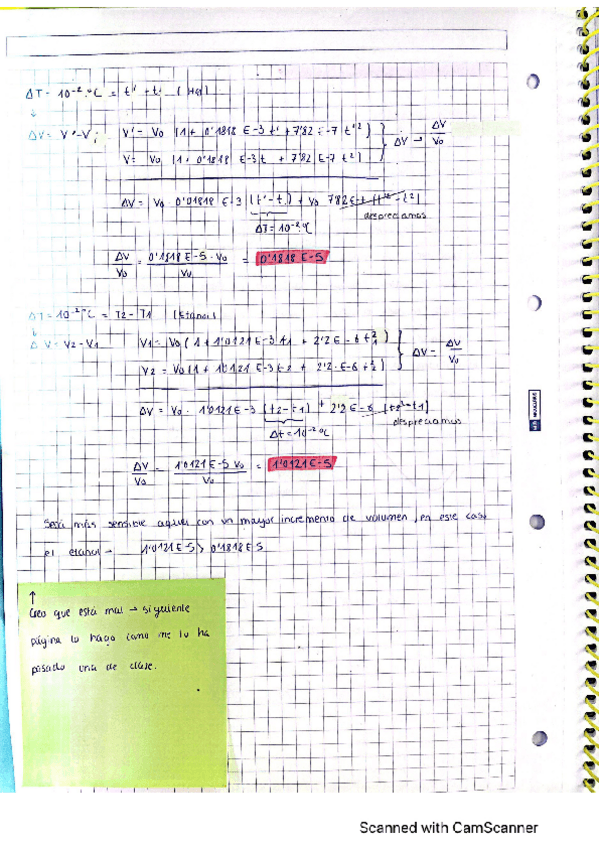 ΔT = 10⁻² ºC = t' + t. (Hg)
↓
ΔV = V' - V; V' = V0 (1 + 0'1818 E-3 t' + 7'82 E-7 t'²)
V = V0 (1 + 0'1818 E-3 t + 7'82 E-7 t²) } ΔV → ΔV/V0
ΔV = V0 0'01818 E-3 (t' - t) + V0 7'82 E-7 (t'² - t²)
despreciamos
ΔT = 10⁻² ºC
ΔV/V0 = 0'1818 E-5 · V0/V0 = 0'1818 E-5
ΔT = 10⁻² ºC = T2 - T1 (Etanol)
↓
ΔV = V2 - V1 V1 = V0 (1 + 1'0121 E-3 t1 + 2'2 E-6 t1²)
V2 = V0 (1 + 1'0121 E-3 t2 + 2'2 · E-6 t2²) } ΔV = ΔV/V0
ΔV = V0 · 1'0121 E-3 (t2 - t1) + 2'2 E-6 [t2² - t1]
despreciamos
Δt = 10⁻² ºC
ΔV/V0 = 1'0121 E-5 V0/V0 = 1'0121 E-5
Será más sensible aquel con un mayor incremento de volumen, en este caso
el etanol → 1'0121 E-5 > 0'1818 E-5
↑
Creo que está mal → siguiente
página lo hago como me lo ha
pasado una de clase.
Scanned with CamScanner